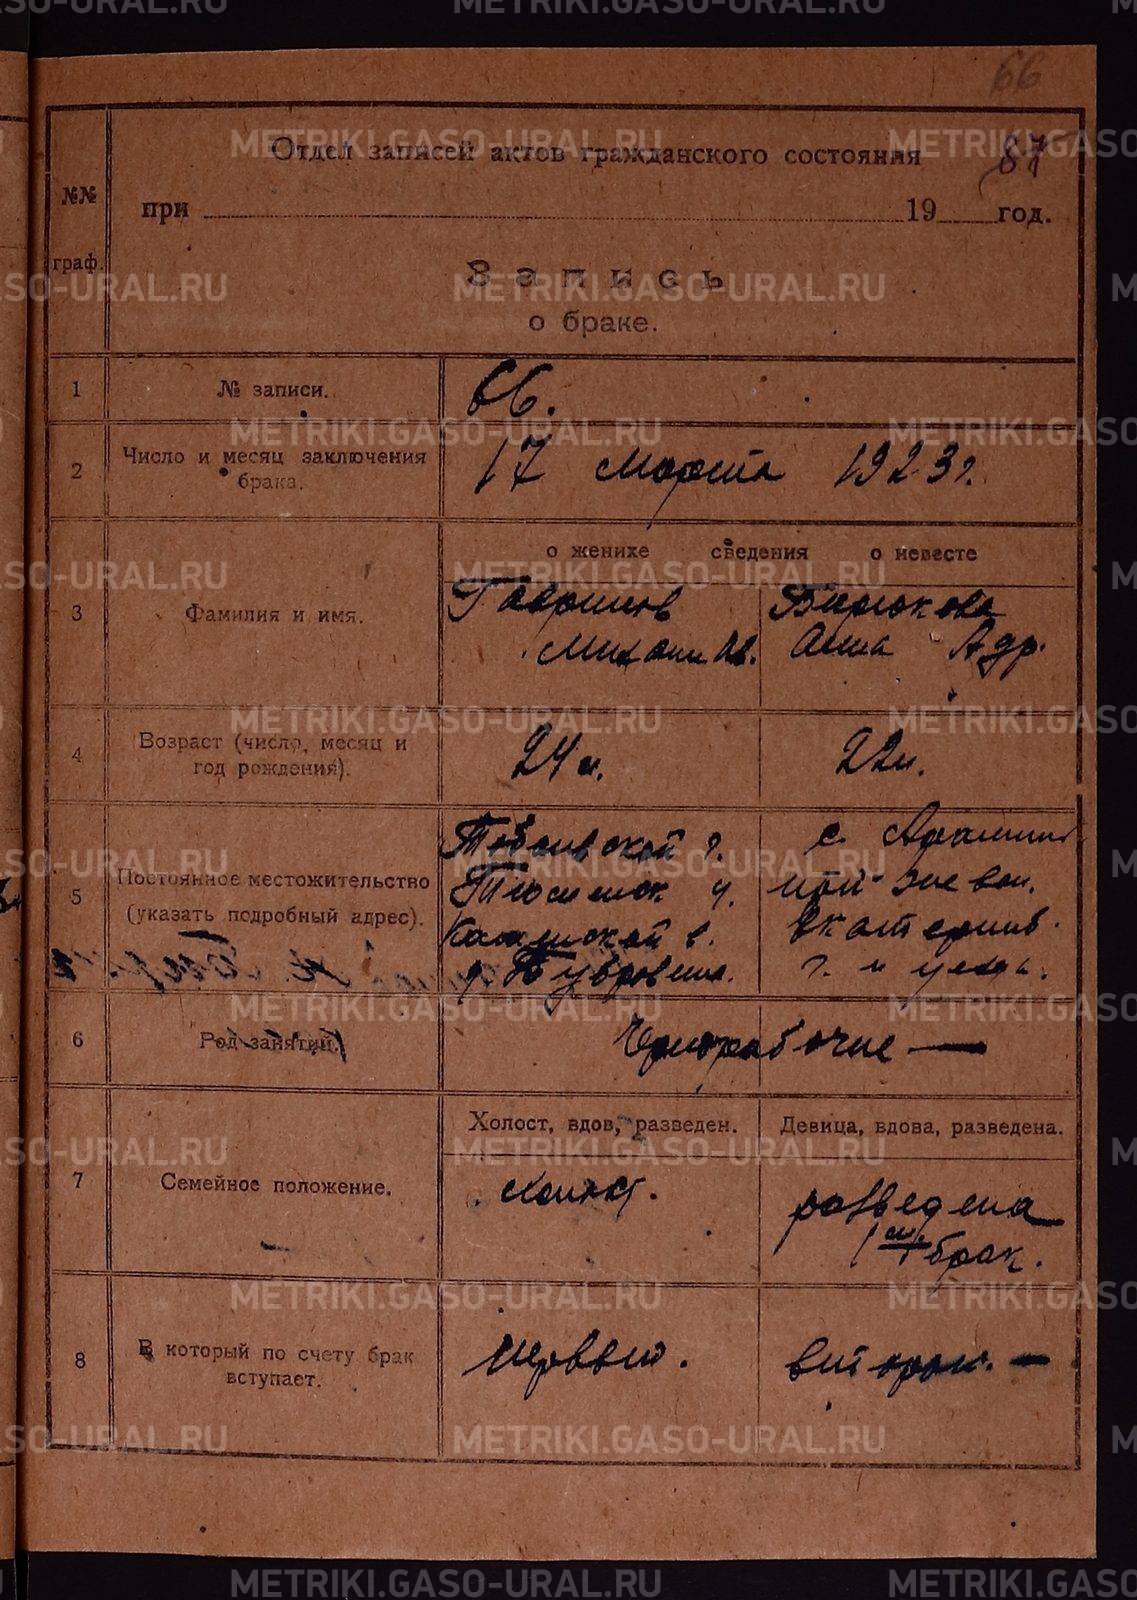 66
87
Отдел записей актов гражданского состояния
при 19 год.
№№ граф.
Запись
о браке.
1 № записи. 66.
2 Число и месяц заключения брака. 17 марта 1923 г.
о женихе сведения о невесте
3 Фамилия и имя.
Гаврилов
Михаил Ив.
Бирюкова
Анна Адр.
4 Возраст (число, месяц и год рождения). 24 л. 22 л.
5 Постоянное местожительство (указать подробный адрес).
Тобольской г.
Тюменск у.
Каменской в.
д.
с. Арамиль
той-же вол.
Екатеринб.
г. и уезда.
6 Род занятий. Чернорабочие —
7 Семейное положение.
Холост, вдов, разведен. Девица, вдова, разведена.
холост.
разведена
1 брак.
8 В который по счету брак вступает. первый. второй. —
METRIKI.GASO-URAL.RU